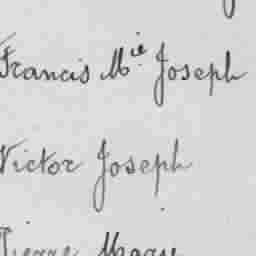 Francis Mie Joseph
Victor Joseph
Pierre Marie